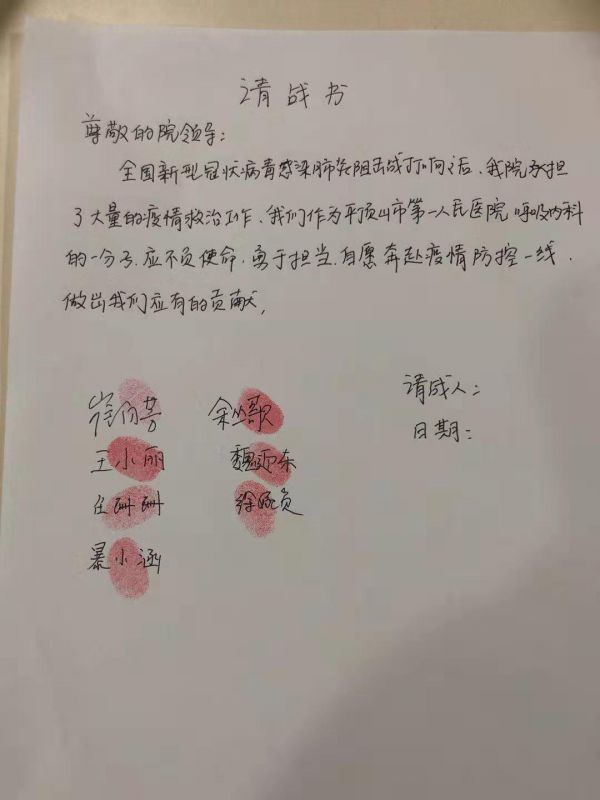 请战书
尊敬的院领导：
全国新型冠状病毒感染肺炎阻击战打响之后、我院承担
了大量的疫情救治工作、我们作为平顶山市第一人民医院呼吸内科
的一分子、应不负使命、勇于担当、自愿奔赴疫情防控一线、
做出我们应有的贡献。
崔 芳
余丛歌
王小丽
魏 东
任酬酬
徐 贞
暴小涵
请战人：
日期：